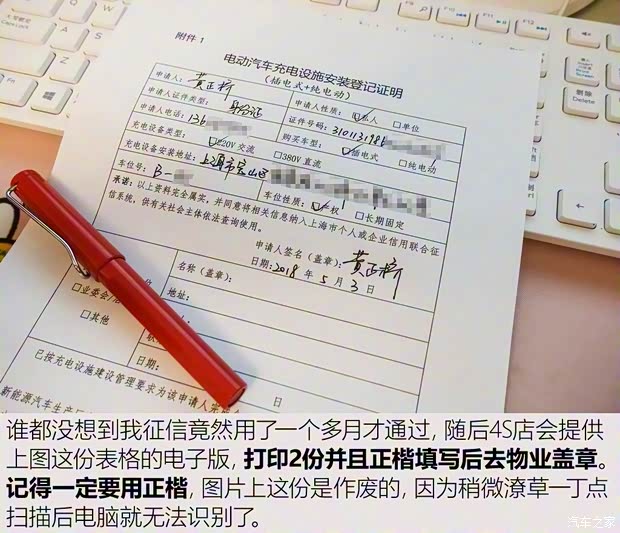 附件1
电动汽车充电设施安装登记证明
（插电式+纯电动）
申请人：黄正桥 申请人性质：☑私人 □单位
申请人证件类型：身份证 证件号码：310113198
申请人电话：136 购买车型：☑插电式 □纯电动
充电设备类型：☑220V 交流 □380V 直流
充电设备安装地址：上海市宝山区
车位号：B- 车位性质：☑产权 □长期固定
承诺：以上资料完全属实，并同意将相关信息纳入上海市个人或企业信用联合征
信系统，供有关社会主体依法查询使用。
申请人签名（盖章）：黄正桥
日期：2018 年 5 月 3 日
□业委会/
□其他
名称（盖章）：
地址：
日期：
已按充电设施建设管理要求为该申请人完
新能源汽车生产
谁都没想到我征信竟然用了一个多月才通过，随后4S店会提供
上图这份表格的电子版，打印2份并且正楷填写后去物业盖章。
记得一定要用正楷，图片上这份是作废的，因为稍微潦草一丁点
扫描后电脑就无法识别了。
汽车之家